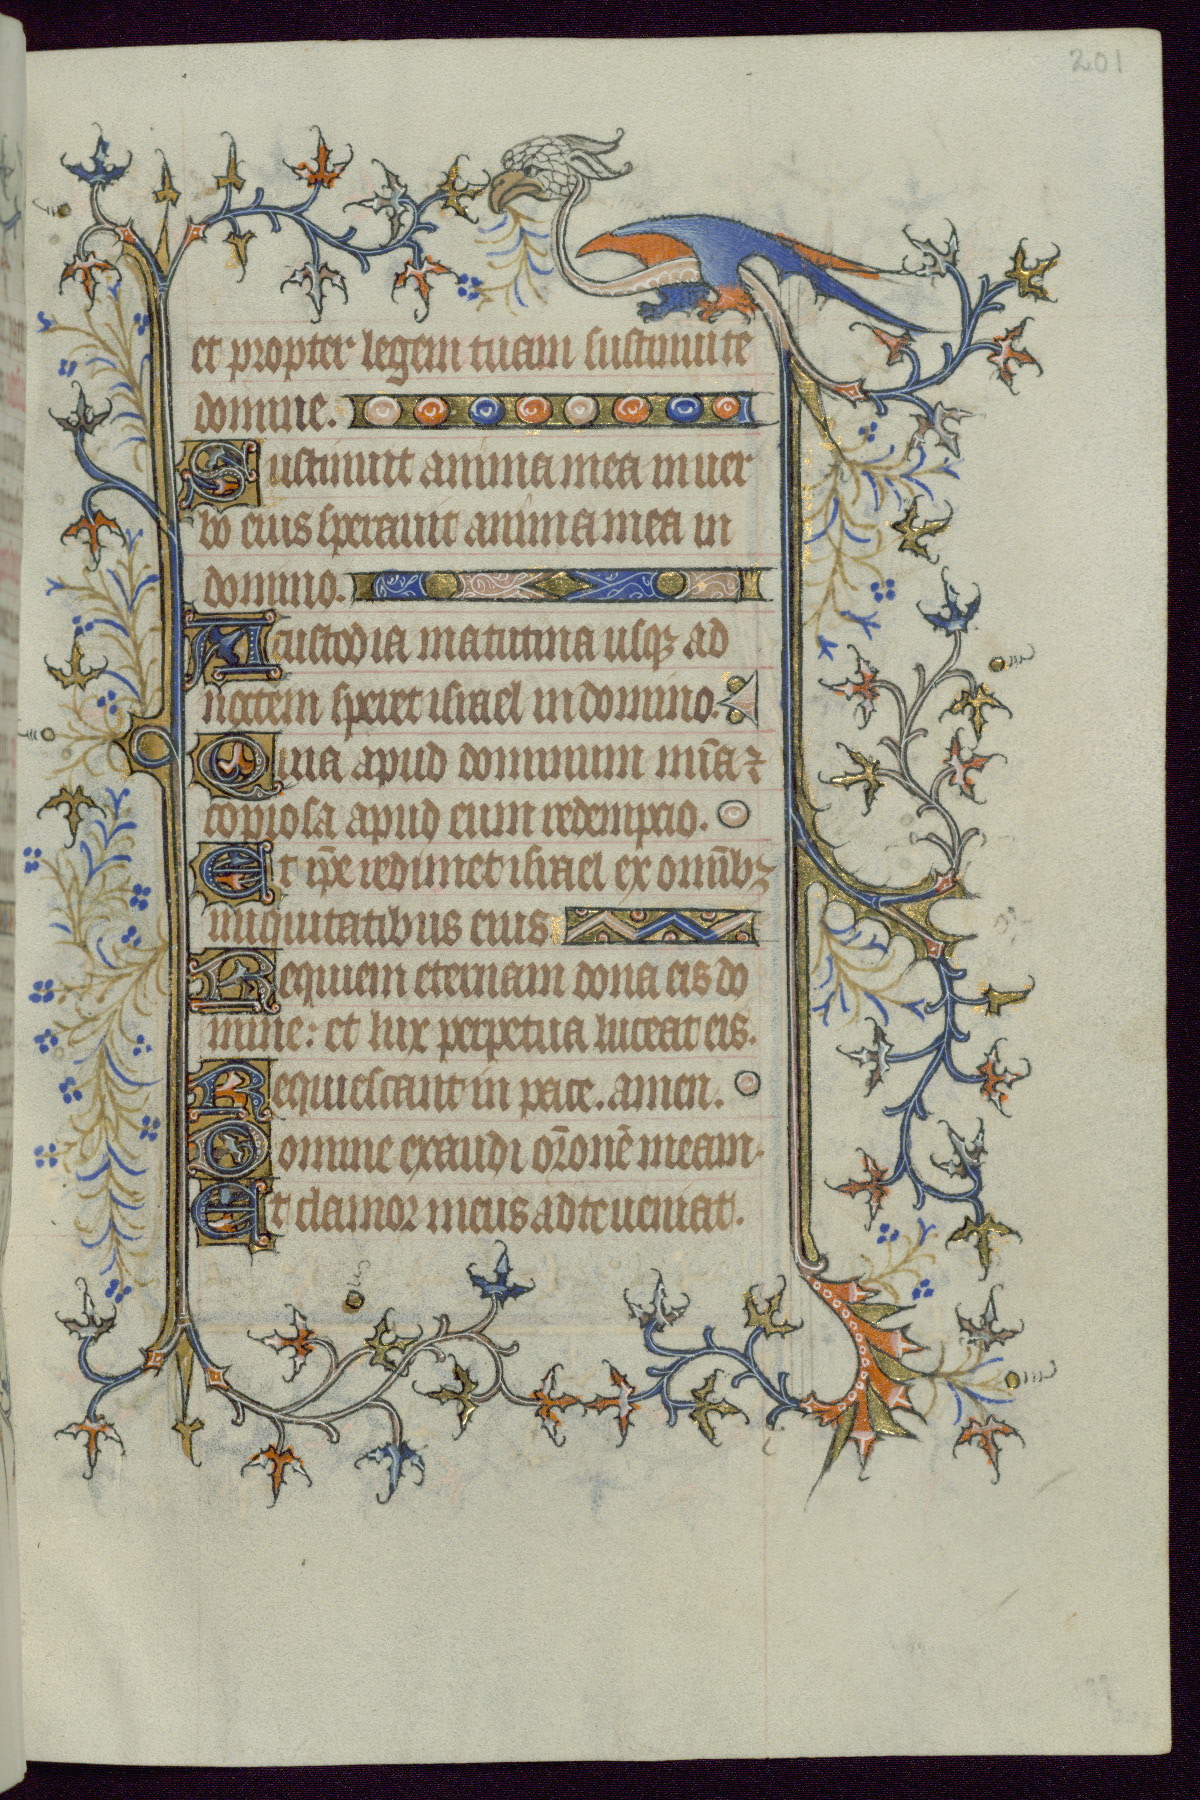 201
et propter legem tuam sustinui te
domine.
Sustinuit anima mea in uer
bo eius sperauit anima mea in
domino.
A custodia matutina usqꝫ ad
noctem speret israel in domino.
Quia apud dominum mīa ⁊
copiosa apud eum redempcio.
Et ip̄e redimet israel ex omībꝫ
iniquitatibus eius.
Requiem eternam dona eis do
mine: et lux perpetua luceat eis.
Requiescant in pace. amen.
Domine exaudi or̄onē meam.
Et clamor meus ad te ueniat.